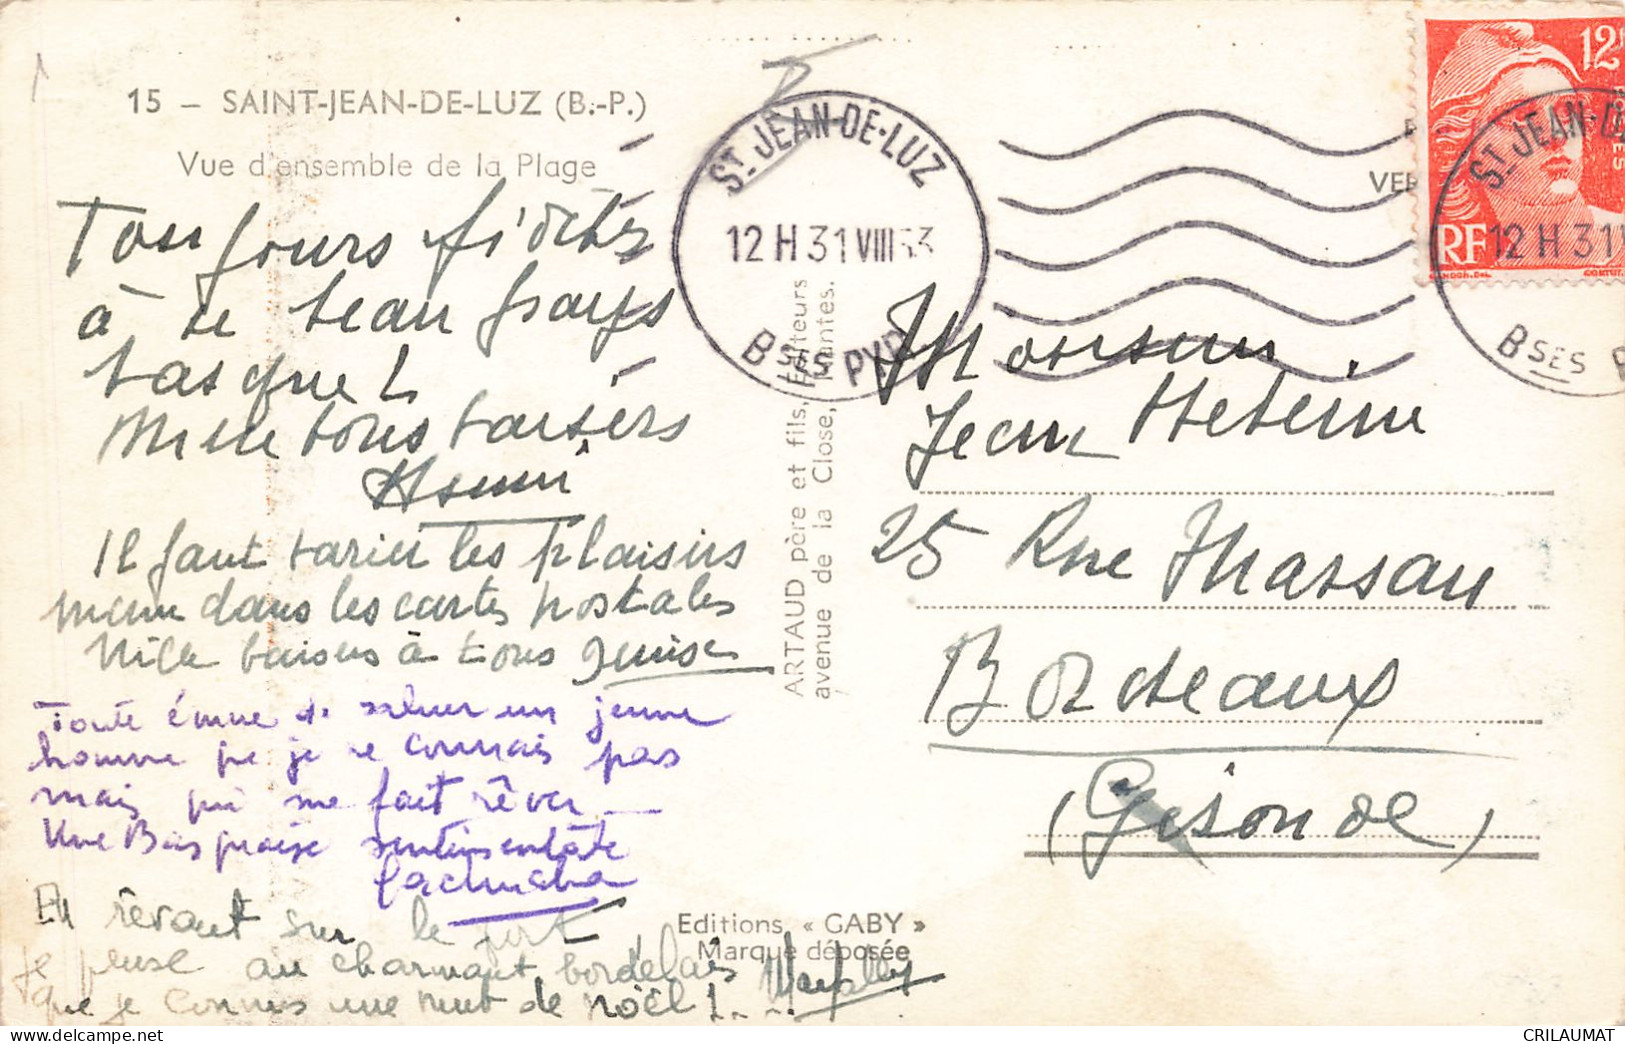 15 – SAINT-JEAN-DE-LUZ (B.-P.)
Vue d'ensemble de la Plage
Toujours fidèles
à ce beau pays
basque !
Mille bons baisers
Henri
Il faut varier les plaisirs
même dans les cartes postales
Mille baisers à tous Denise
Toute émue de saluer un jeune
homme que je ne connais pas
mais qui me fait rêver
Une Basquaise sentimentale
En rêvant sur le port
je pense au charmant bordelais
que je connus une nuit de noël !...
ST JEAN-DE-LUZ
12 H 31 VIII 53
BSES PYR
ARTAUD père et fils, Editeurs
avenue de la Close, Nantes.
Editions « GABY »
Marque déposée
12F
RF
GANDON.DEL.
CORTOT.
ST JEAN-D
12 H 31 V
BSES P
Monsieur
Jean
25 Rue
Bordeaux
(Gironde)
CRILAUMAT